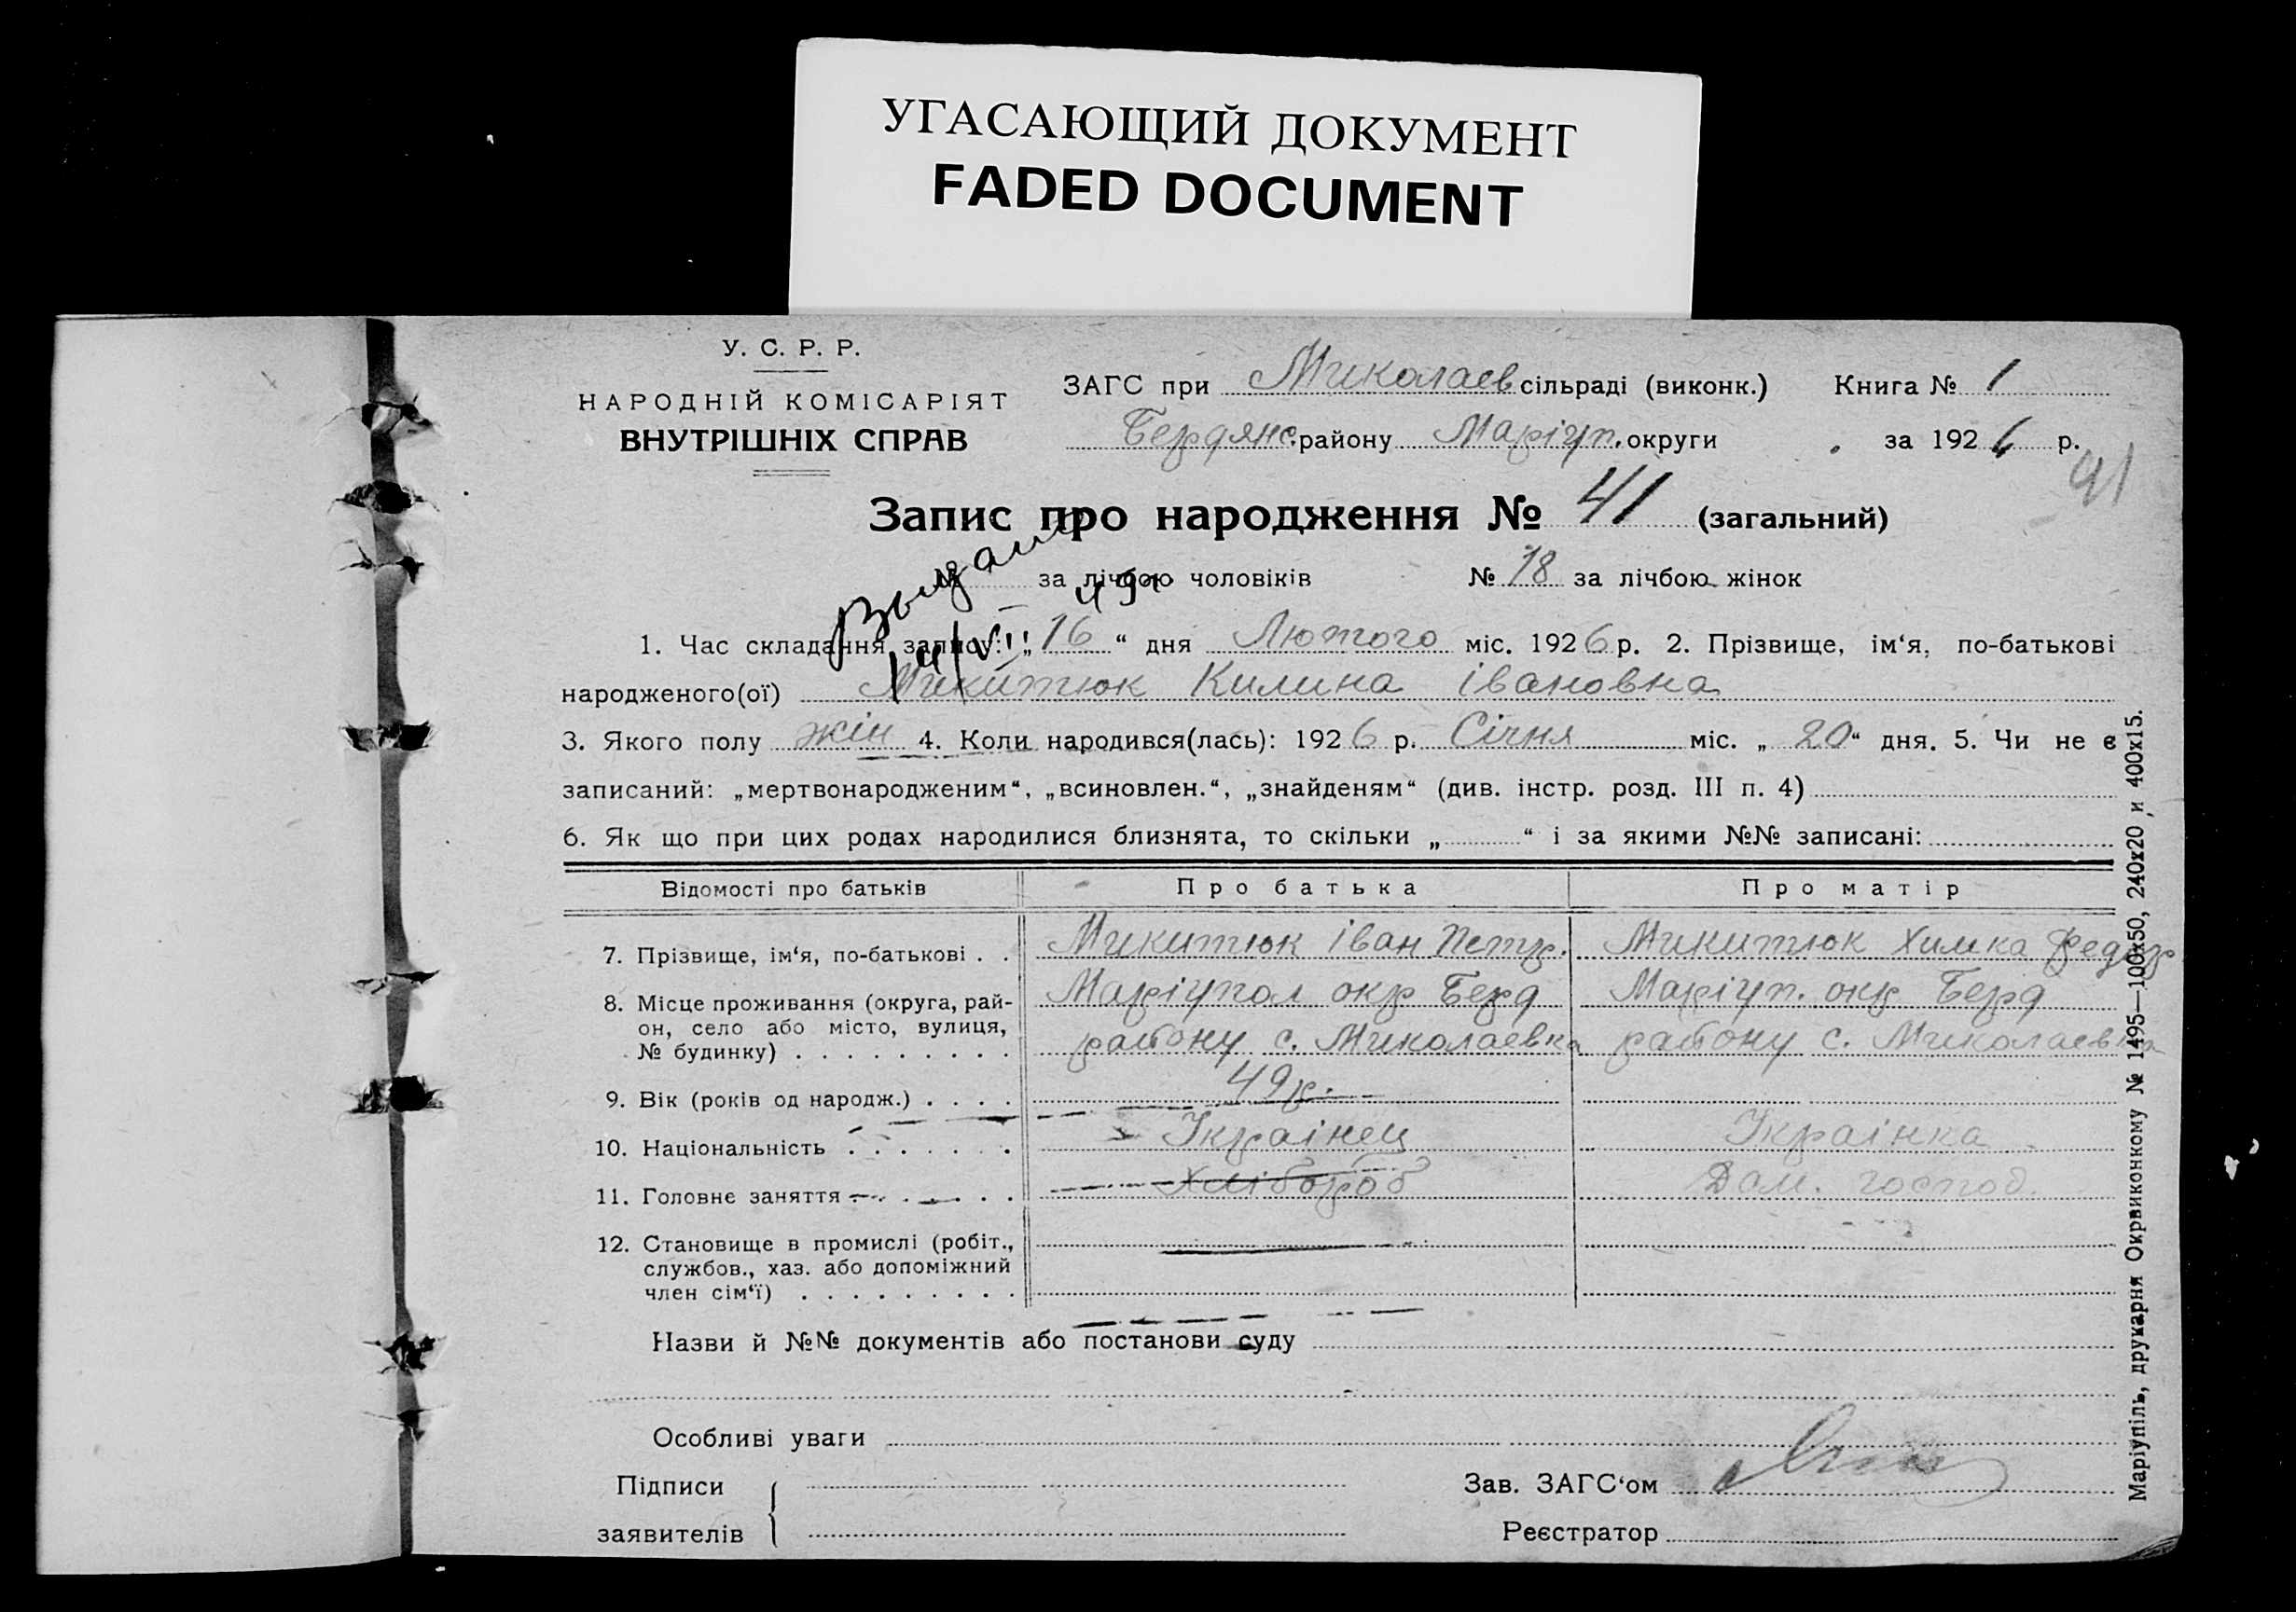 УГАСАЮЩИЙ ДОКУМЕНТ
FADED DOCUMENT
У. С. Р. Р.
НАРОДНІЙ КОМІСАРІЯТ
ВНУТРІШНІХ СПРАВ
ЗАГС при Миколаев сільраді (виконк.) Книга № 1
Бердянс. району Маріуп. округи за 1926 р.
41
Запис про народження № 41 (загальний)
№ за лічбою чоловіків № 18 за лічбою жінок
Выдано
14/VII 49г
1. Час складання запису: „16“ дня Лютого міс. 1926 р. 2. Прізвище, ім‘я, по-батькові
народженого(ої) Микитюк Килина івановна
3. Якого полу жін 4. Коли народився(лась): 1926 р. Січня міс. „20“ дня. 5. Чи не є
записаний: „мертвонародженим“, „всиновлен.“, „знайденям“ (див. інстр. розд. III п. 4)
6. Як що при цих родах народилися близнята, то скільки „ “ і за якими №№ записані:
Відомості про батьків Про батька Про матір
7. Прізвище, ім‘я, по-батькові . . Микитюк іван Петр. Микитюк Химка Федор
8. Місце проживання (округа, рай- Маріупол окр Берд Маріуп. окр Берд
он, село або місто, вулиця, району с. Миколаевка району с. Миколаевка
№ будинку) . . . . . . . . .
9. Вік (років од народж.) . . . . 49р.
10. Національність . . . . . . . Украінец Украінка
11. Головне заняття . . . . . Хлібороб Дом. господ.
12. Становище в промислі (робіт.,
службов., хаз. або допоміжний
член сім‘ї) . . . . . . . . .
Назви й №№ документів або постанови суду
Особливі уваги
Підписи
заявителів
Зав. ЗАГС‘ом
Реєстратор
Маріупіль, друкарня Окрвиконкому № 1495—100х50, 240х20 и 400х15.